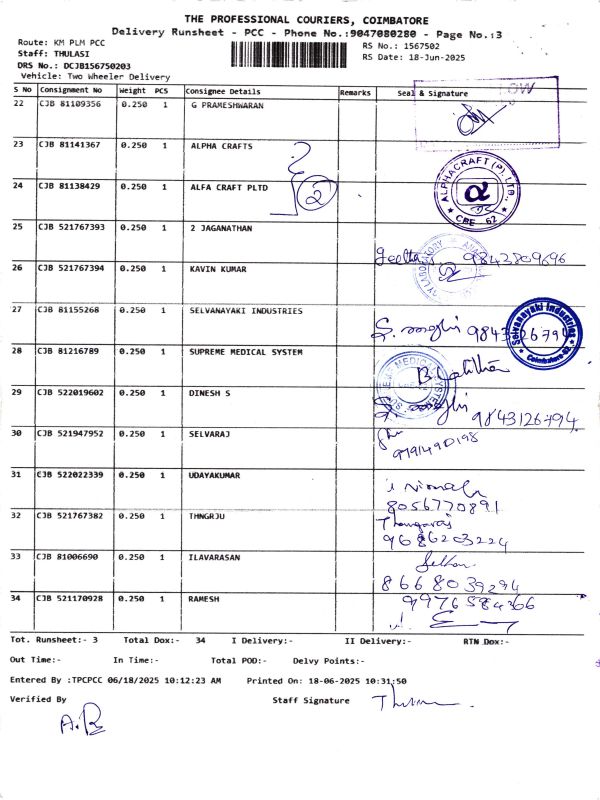 THE PROFESSIONAL COURIERS, COIMBATORE
Delivery Runsheet - PCC - Phone No.:9047080280 - Page No.:3
Route: KM PLM PCC
Staff: THULASI
DRS No.: DCJB156750203
Vehicle: Two Wheeler Delivery
RS No.: 1567502
RS Date: 18-Jun-2025
S No Consignment No Weight PCS Consignee Details Remarks Seal & Signature
22 CJB 81109356 0.250 1 G PRAMESHWARAN
23 CJB 81141367 0.250 1 ALPHA CRAFTS
24 CJB 81138429 0.250 1 ALFA CRAFT PLTD
2
ALPHACRAFT (P) LTD.,
α
CBE - 62
25 CJB 521767393 0.250 1 2 JAGANATHAN
Geetha 9842809696
26 CJB 521767394 0.250 1 KAVIN KUMAR
27 CJB 81155268 0.250 1 SELVANAYAKI INDUSTRIES
9843126794
Selvanayaki Industries
Coimbatore-62
28 CJB 81216789 0.250 1 SUPREME MEDICAL SYSTEM
29 CJB 522019602 0.250 1 DINESH S
9843126794
30 CJB 521947952 0.250 1 SELVARAJ
9791490198
31 CJB 522022339 0.250 1 UDAYAKUMAR
8056770891
32 CJB 521767382 0.250 1 THNGRJU
Thangaraj
9686203224
33 CJB 81006690 0.250 1 ILAVARASAN
8668039294
34 CJB 521170928 0.250 1 RAMESH
9976584366
Tot. Runsheet:- 3 Total Dox:- 34 I Delivery:- II Delivery:- RTN Dox:-
Out Time:- In Time:- Total POD:- Delvy Points:-
Entered By :TPCPCC 06/18/2025 10:12:23 AM Printed On: 18-06-2025 10:31:50
Verified By Staff Signature